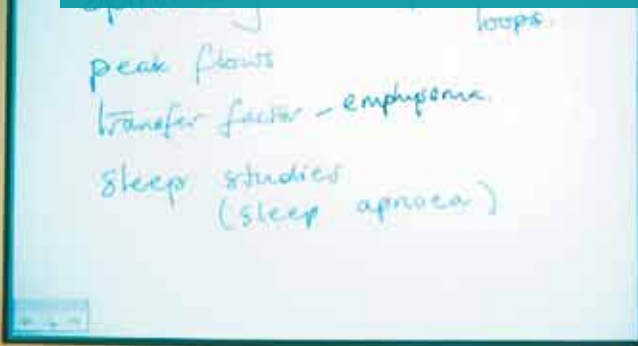 loops.
peak flows
transfer factor - emphysema.
sleep studies
(sleep apnoea)